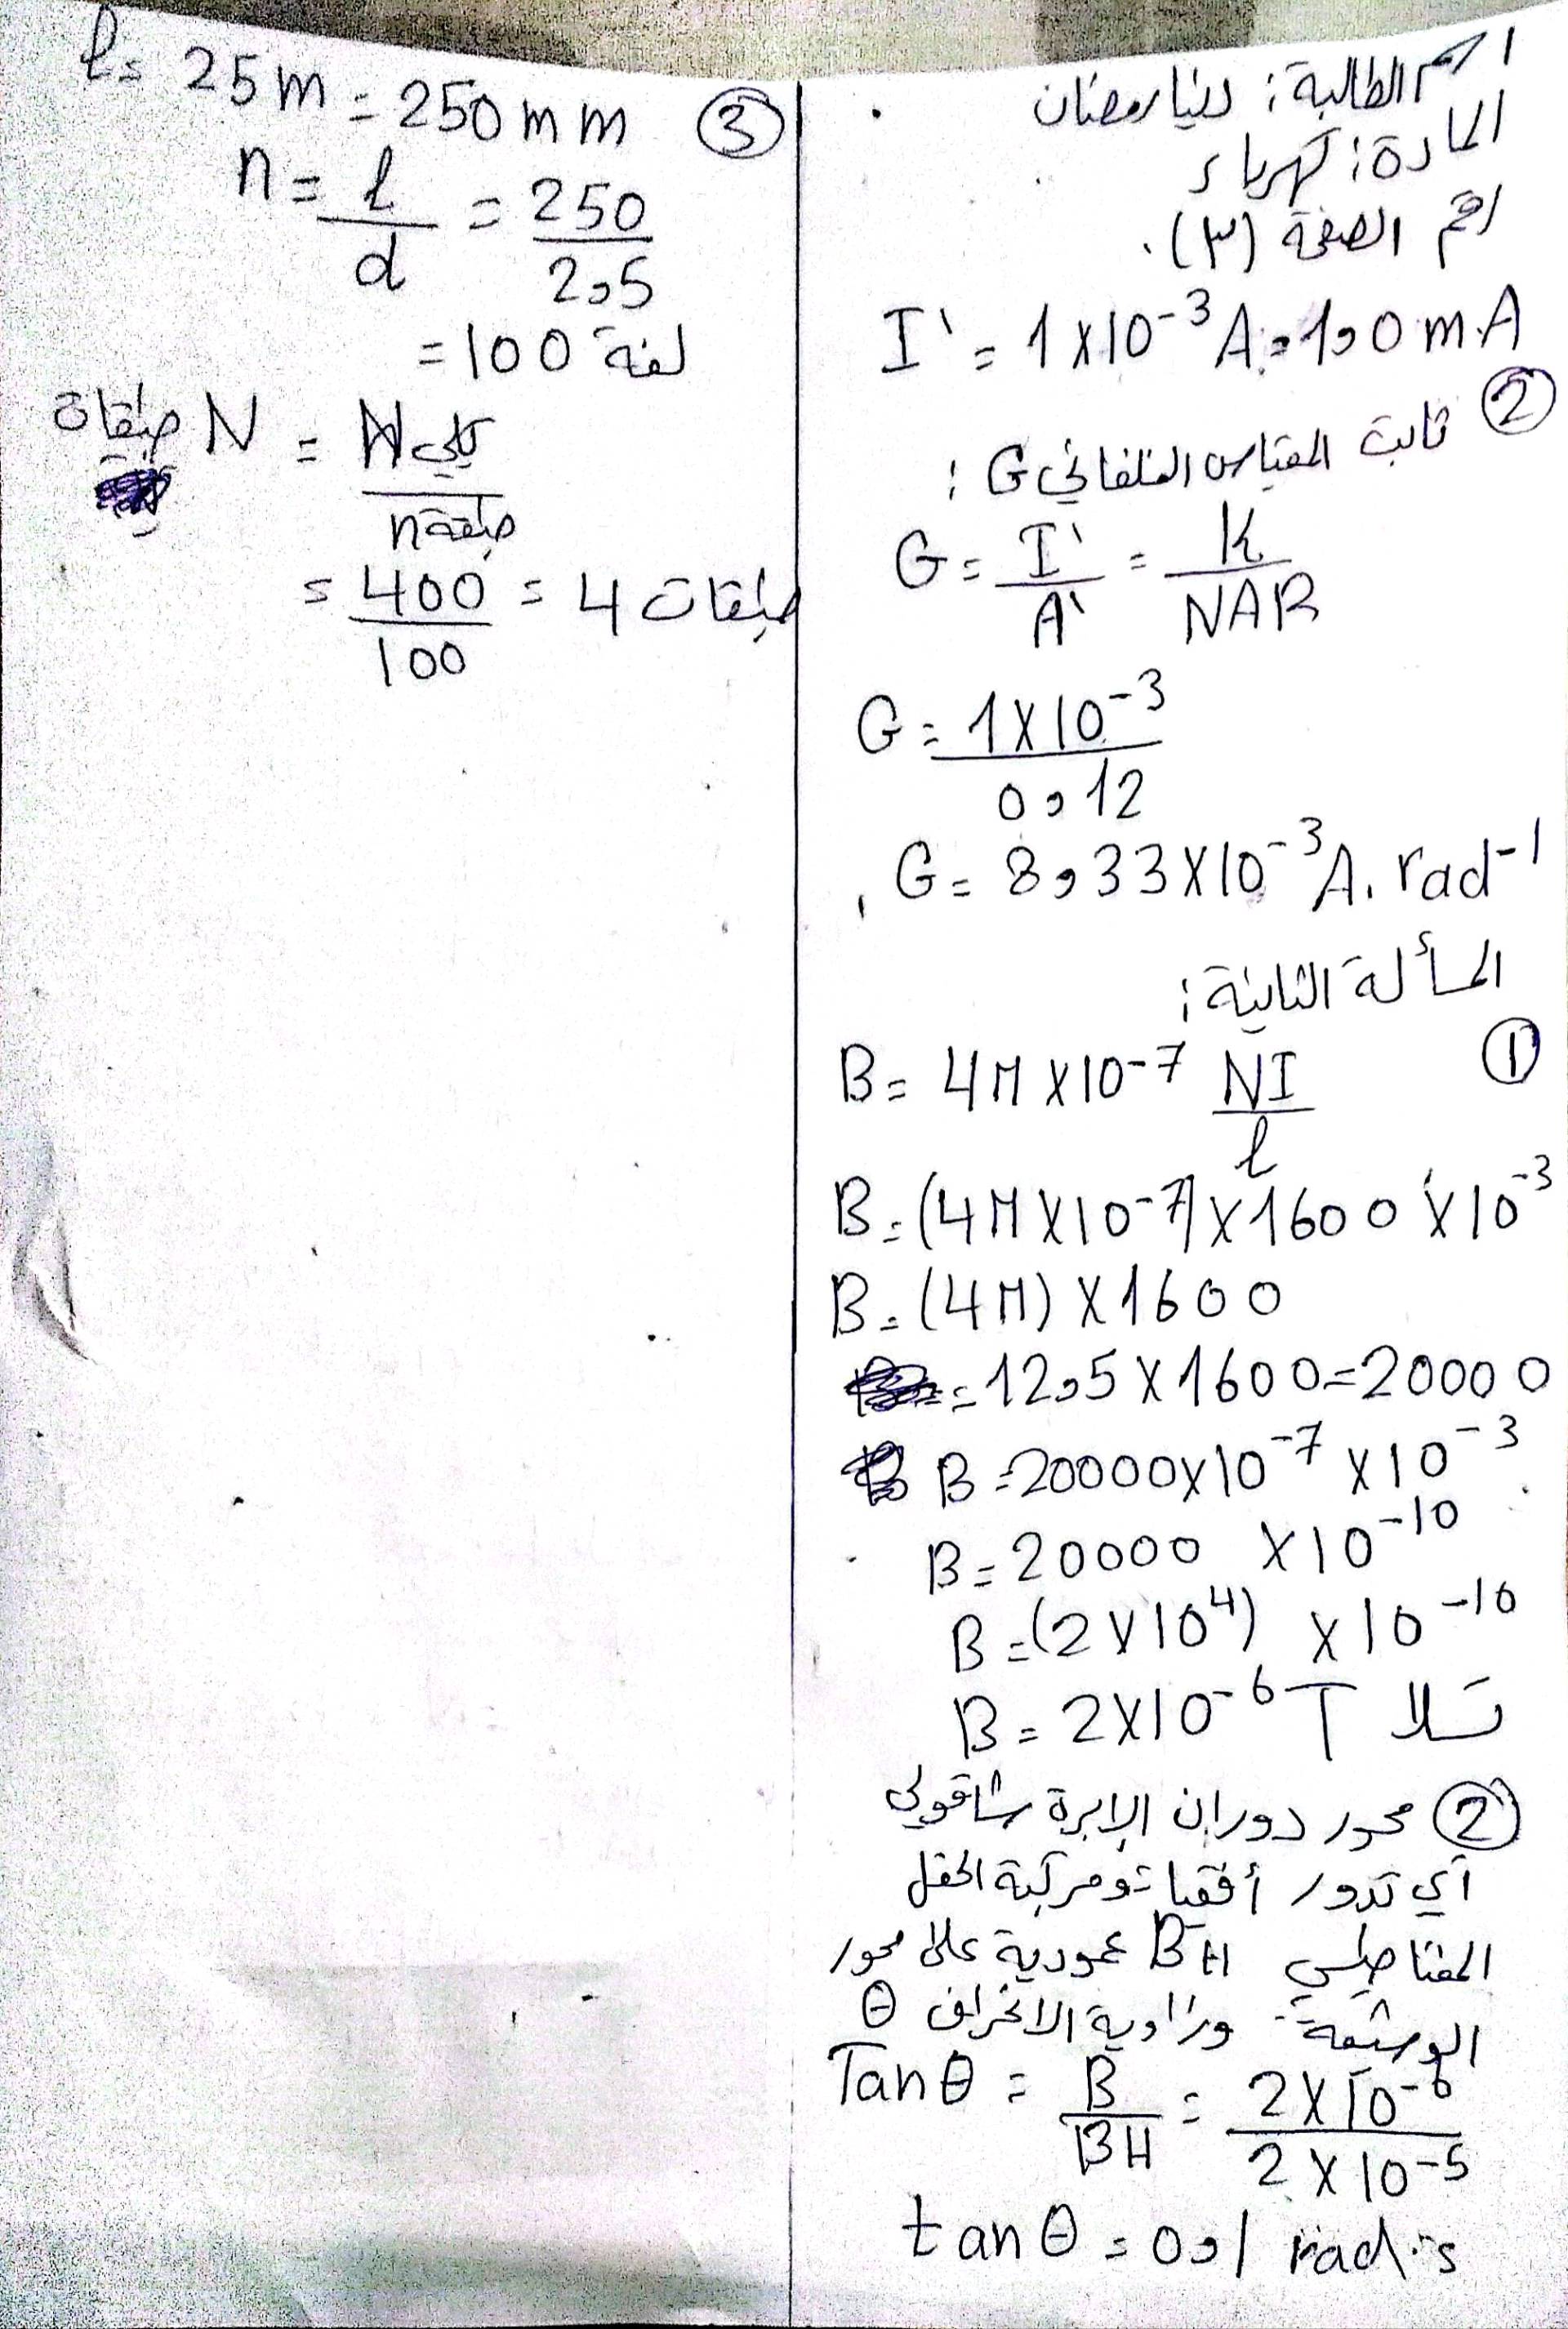 اسم الطالبة: دنيا رمضان
المادة: كهرباء
رقم الصفحة (٣).
I' = 1 x 10⁻³ A = 1,0 mA
② ثابت المقياس الغلفاني G :
G = I' / A' = K / NAB
G = 1 x 10⁻³ / 0,12
G = 8,33 x 10⁻³ A. rad⁻¹
المسألة الثانية:
① B = 4π x 10⁻⁷ NI / l
B = (4π x 10⁻⁷) x 1600 x 10⁻³
B = (4π) x 1600
= 12,5 x 1600 = 20000
B = 20000 x 10⁻⁷ x 10⁻³
B = 20000 x 10⁻¹⁰
B = (2 x 10⁴) x 10⁻¹⁰
B = 2 x 10⁻⁶ T تسلا
② محور دوران الإبرة شاقولي
أي تدور أفقيا ومركبة الحقل
المغناطيسي BH عمودية على محور
الوشيعة وزاوية الانحراف θ
Tan θ = B / BH = 2 x 10⁻⁶ / 2 x 10⁻⁵
tan θ = 0,1 rad
l = 25 m = 250 mm ③
n = l / d = 250 / 2,5
= 100 لفة
N طبقات = N كلي / n طبقة
= 400 / 100 = 4 طبقات